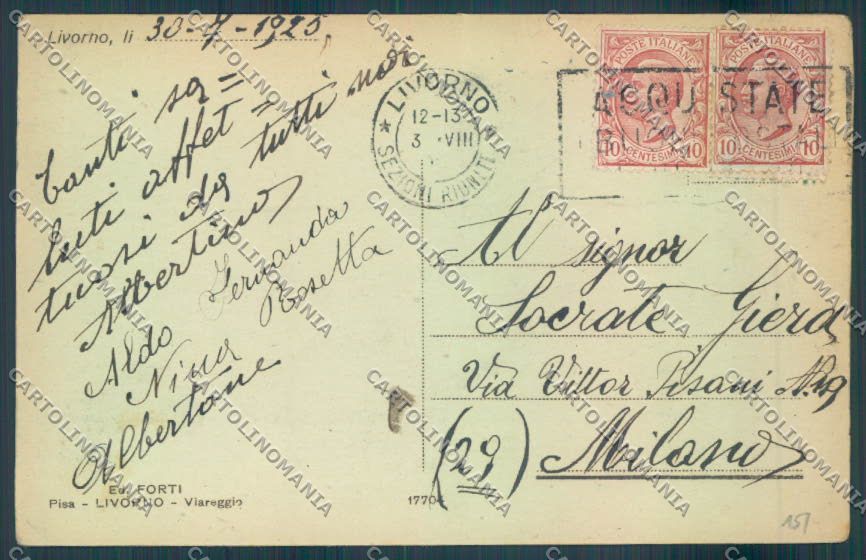 Livorno, li 30-7-1925.
Tanti sa=
luti affet=
tuosi da tutti noi
Albertino
Aldo Fernanda
Nina Rosetta
Albertone
Ed. FORTI
Pisa - LIVORNO - Viareggio
17704
LIVORNO
12-13
3 VIII
SEZIONI RIUNITE
POSTE ITALIANE
10 CENTESIMI 10
POSTE ITALIANE
10 CENTESIMI 10
ACQUISTATE
Al signor
Socrate Giera
Via Vittor Pisani N. 29
(29) Milano
15/-
CARTOLINOMANIA